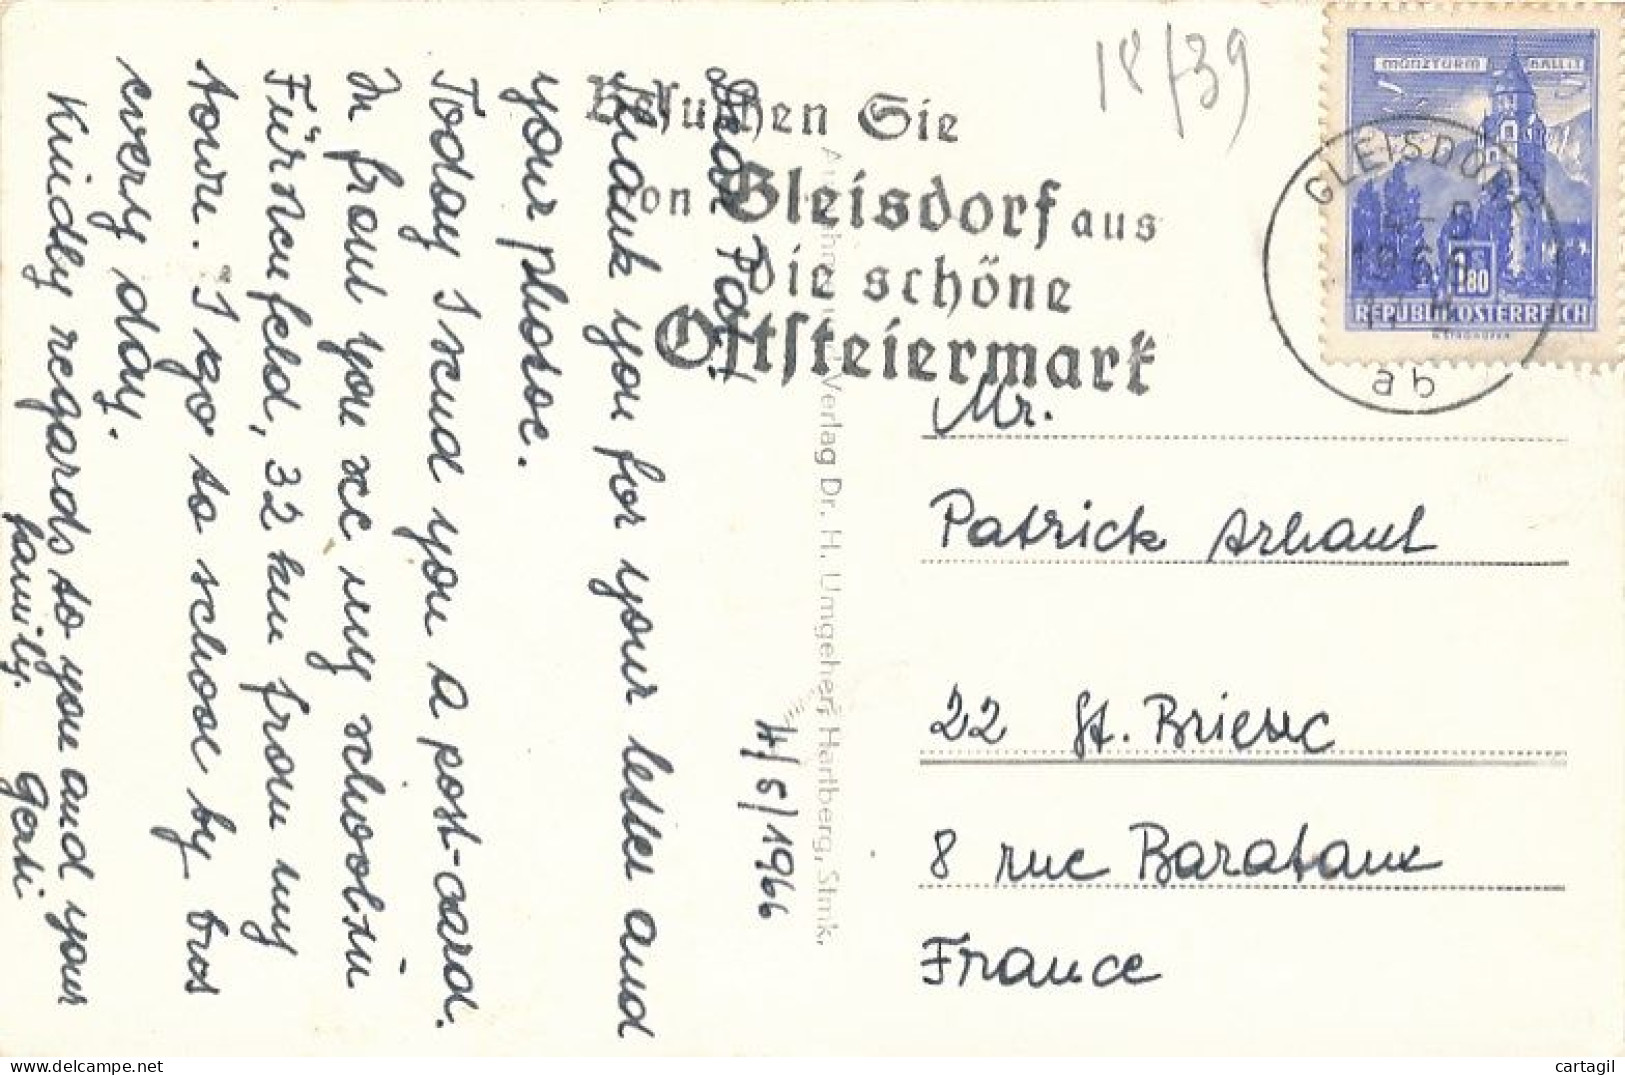 18/39
Besuchen Sie
von Gleisdorf aus
Die schöne
Oststeiermark
MÜNZTURM HALL i.T.
1.80
REPUBLIK ÖSTERREICH
GLEISDORF
1966
ab
4/5/1966
Dear Pat!
Thank you for your letter and
your photoe.
Today I send you a post-card.
In front you se my school in
Fürstenfeld, 32 km from my
towe. I go to school by bus
every day.
Kindly regards to you and your
family. Gerti
Verlag Dr. H. Umgeher, Hartberg, Stmk.
Mr.
Patrick Arhaut
22 St. Brieuc
8 rue Barataux
France
cartagil